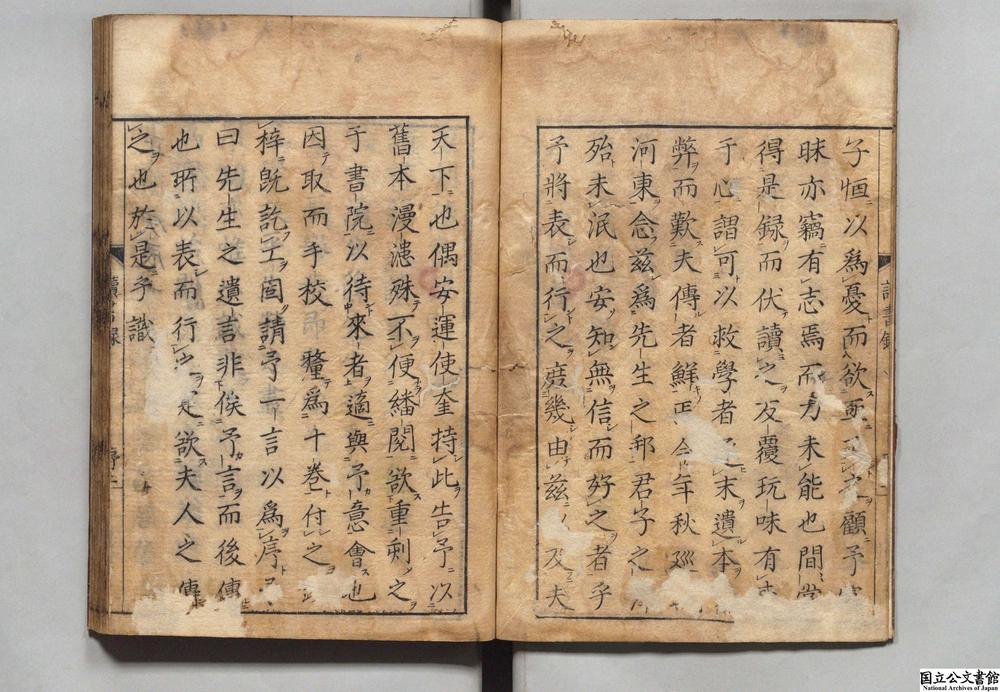 子恒以爲憂而欲
顧予
昧亦竊有志焉而力未能也間嘗
得是録而伏讀之反覆玩味有
于心謂可以救學者末遺本
弊而歎夫傳者鮮 今年秋巡
河東念兹爲先生之邦君子之
殆未泯也安知無信而好之者乎
予將表而行之庻幾由兹 及夫
讀書録
天下也偶安運使奎持此告予以
舊本漫漶殊不便繙閲欲重刺之
于書院以待來者適與予意會也
因取而手校 釐爲十巻付之
梓既訖工固請予一言以爲序
曰先生之遺言非俟予言而後傳
也所以表而行之是欲夫人之傳
之也於是乎識
讀書録
序二
国立公文書館
National Archives of Japan